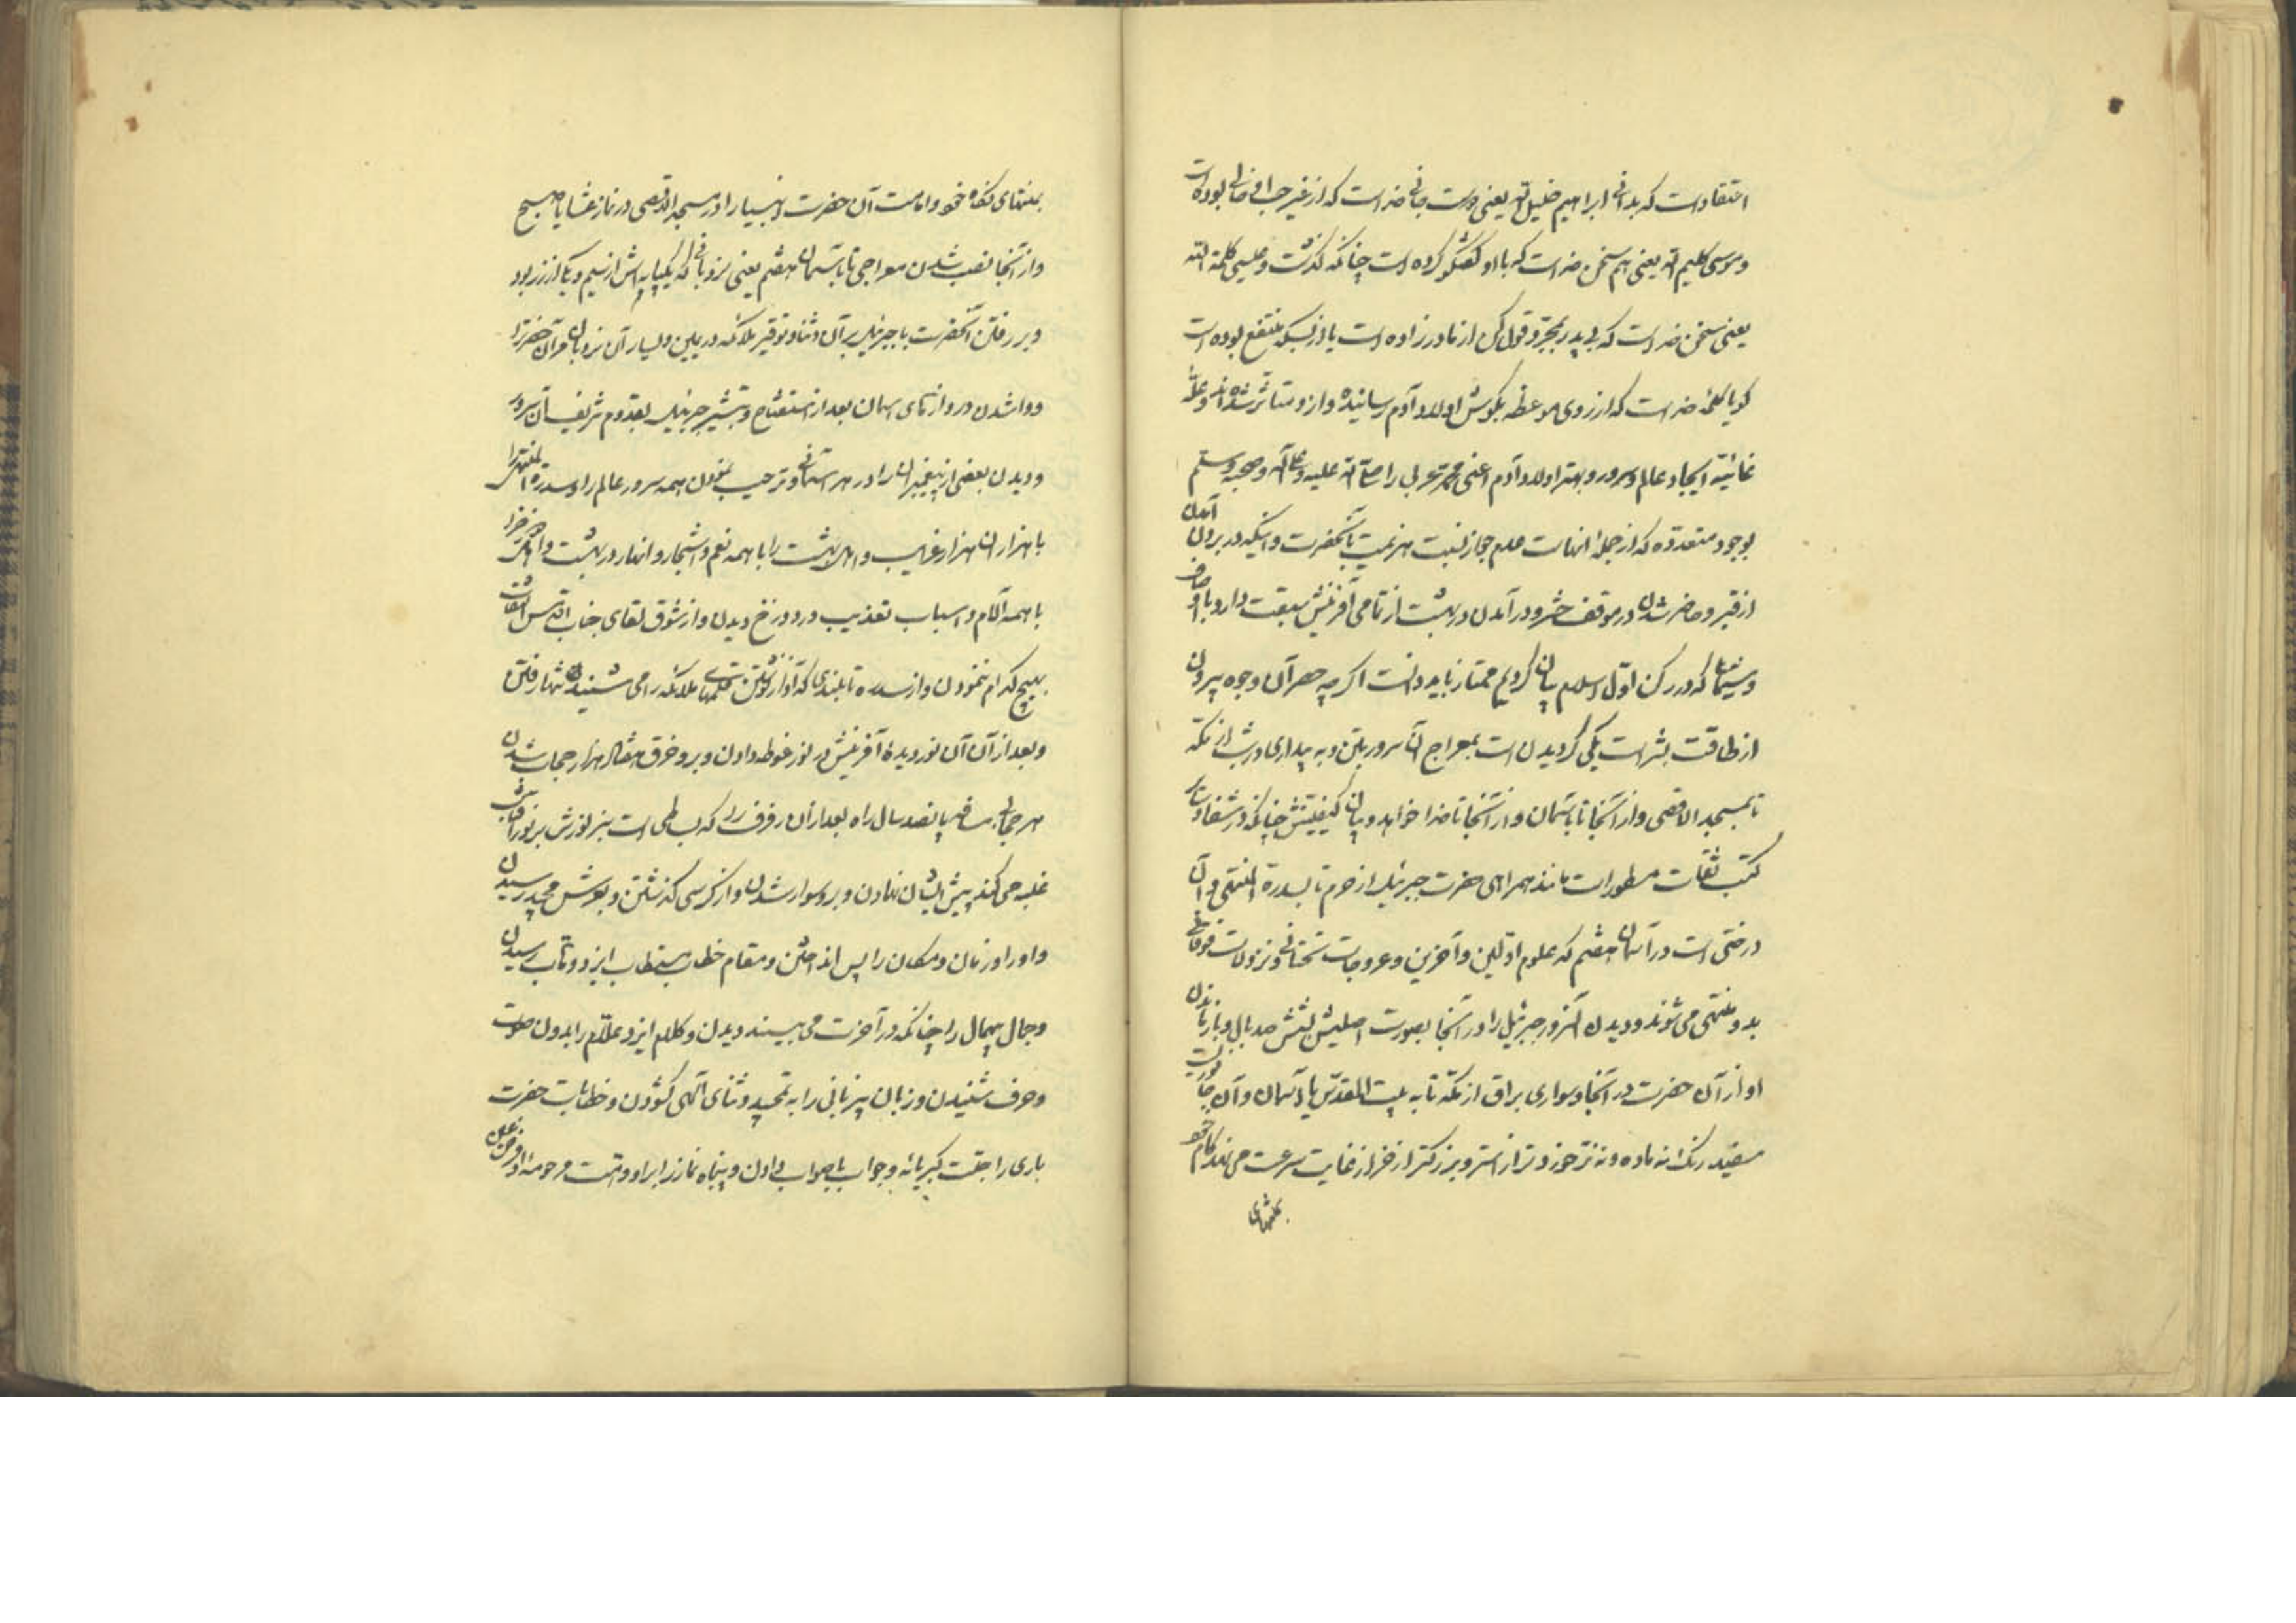 اعتقاد است که بدانی ابراهیم خلیل الله یعنی دوست جانی خدا است که از غیر حب او خالی بوده است
و موسی کلیم الله یعنی هم سخن خدا است که با او گفتگو کرده است چنانکه گذشت و عیسی کلمة الله
یعنی سخن خدا است که بی پدر بمجرد قول کن از مادر زاده است یا از بسکه منتفع بوده است
کویا کلمهٔ خدا است که از روی موعظه بگوش اولاد آدم رسانیده و ازو متاثر شده‌اند و علت
غائیه ایجاد عالم و سرور و بهتر اولاد آدم اعنی محمد عربی را صلی الله علیه و علی آله و صحبه و سلم
بوجوه متعدده که از جمله انهاست عدم جواز نسبت هزیمت بآنحضرت و اینکه در برون آمدن
از قبر و حاضر شدن در موقف حشر و در آمدن در بهشت از تمامی آفرینش سبقت دارد با اوصاف
و شیمی که در رکن اول اسلام بیان کردیم ممتاز باید دانست اگرچه حصر آن وجوه بیرون
از طاقت بشر است یکی گرویدن است بمعراج آن سرور بتن و به بیداری در شب از مکه
تا بمسجد الاقصی و از آنجا تا بآسمان و از آنجا تا خدا خواهد و بیان کیفیتش چنانکه در شفا و دیگر
کتب ثقات مسطور است مانند همراهی حضرت جبرئیل از حرم تا بسدرة المنتهی و آن
درختی است در آسمان هفتم که علوم اولین و آخرین و عروجات تحتانی و نزولات فوقانی
بدو منتهی می شوند و دیدن آنسرور جبرئیل را در آنجا بصورت اصلیش بشش صد بال و باز ماندن
او از آن حضرت در آنجا و سواری براق از مکه تا به بیت المقدس یا آسمان و آن جانوریست
سفید رنک نه ماده و نه نر خوردتر از استر و بزرکتر از خر از غایت سرعت می نهد کام خود
بمنتهای
بمنتهای نکاه خود و امامت آن حضرت انبیا را در مسجد الاقصی در نماز عشا یا صبح
و از آنجا نصب شدن معراجی تا بآسمان هفتم یعنی نردبانی که یکپایه اش از سیم و یکی از زر بود
و بر رفتن آنحضرت با جبرئیل بر آن و ثنا و توقیر ملائکه در یمین و یسار آن نردبان مر آن حضرت را
و وا شدن دروازهای اسمان بعد از استفتاح و تبشیر جبرئیل بقدوم شریف آن سرور
و دیدن بعضی از پیغمبران را در هر آسمانی و ترحیب نمودن همه سرور عالم را و سدرة المنتهی را
با هزاران هزار غرایب و اهل بهشت را با همه نعم و اشجار و انهار در بهشت و اهل دوزخ را
با همه آلام و اسباب تعذیب در دوزخ دیدن و از شوق لقای جناب اقدس التفات
بهیچ کدام ننمودن و از سدره تا بلندی که آواز نوشتن قلمهای ملائکه را می شنیدند تنها رفتن
و بعد از آن آن نور دیدهٔ آفرینش در نور غوطه دادن و برو خرق هفتاد هزار حجاب شدن
هر حجابی مسافه پانصد سال راه بعد از آن رفرف را که بساطی است سبز نورش بر نور آفتاب
غلبه می کند پیش ایشان نهادن و برو سوار شدن و از کرسی گذشتن و بعرش مجید رسیدن
و او را و زمان و مکان را پس انداختن و مقام خطاب مستطاب ایزد وهاب رسیدن
و جمال بیمثال را چنانکه در آخرت می بینند دیدن و کلام ایزد علام را بدون صوت
و حرف شنیدن و زبان بیزبانی را به تمجید و ثنای آلهی کشودن و خطابات حضرت
باری را جلت کبریائه جواب با صواب دادن و پنجاه نماز را برا و و امت مرحومهٔ او فرض